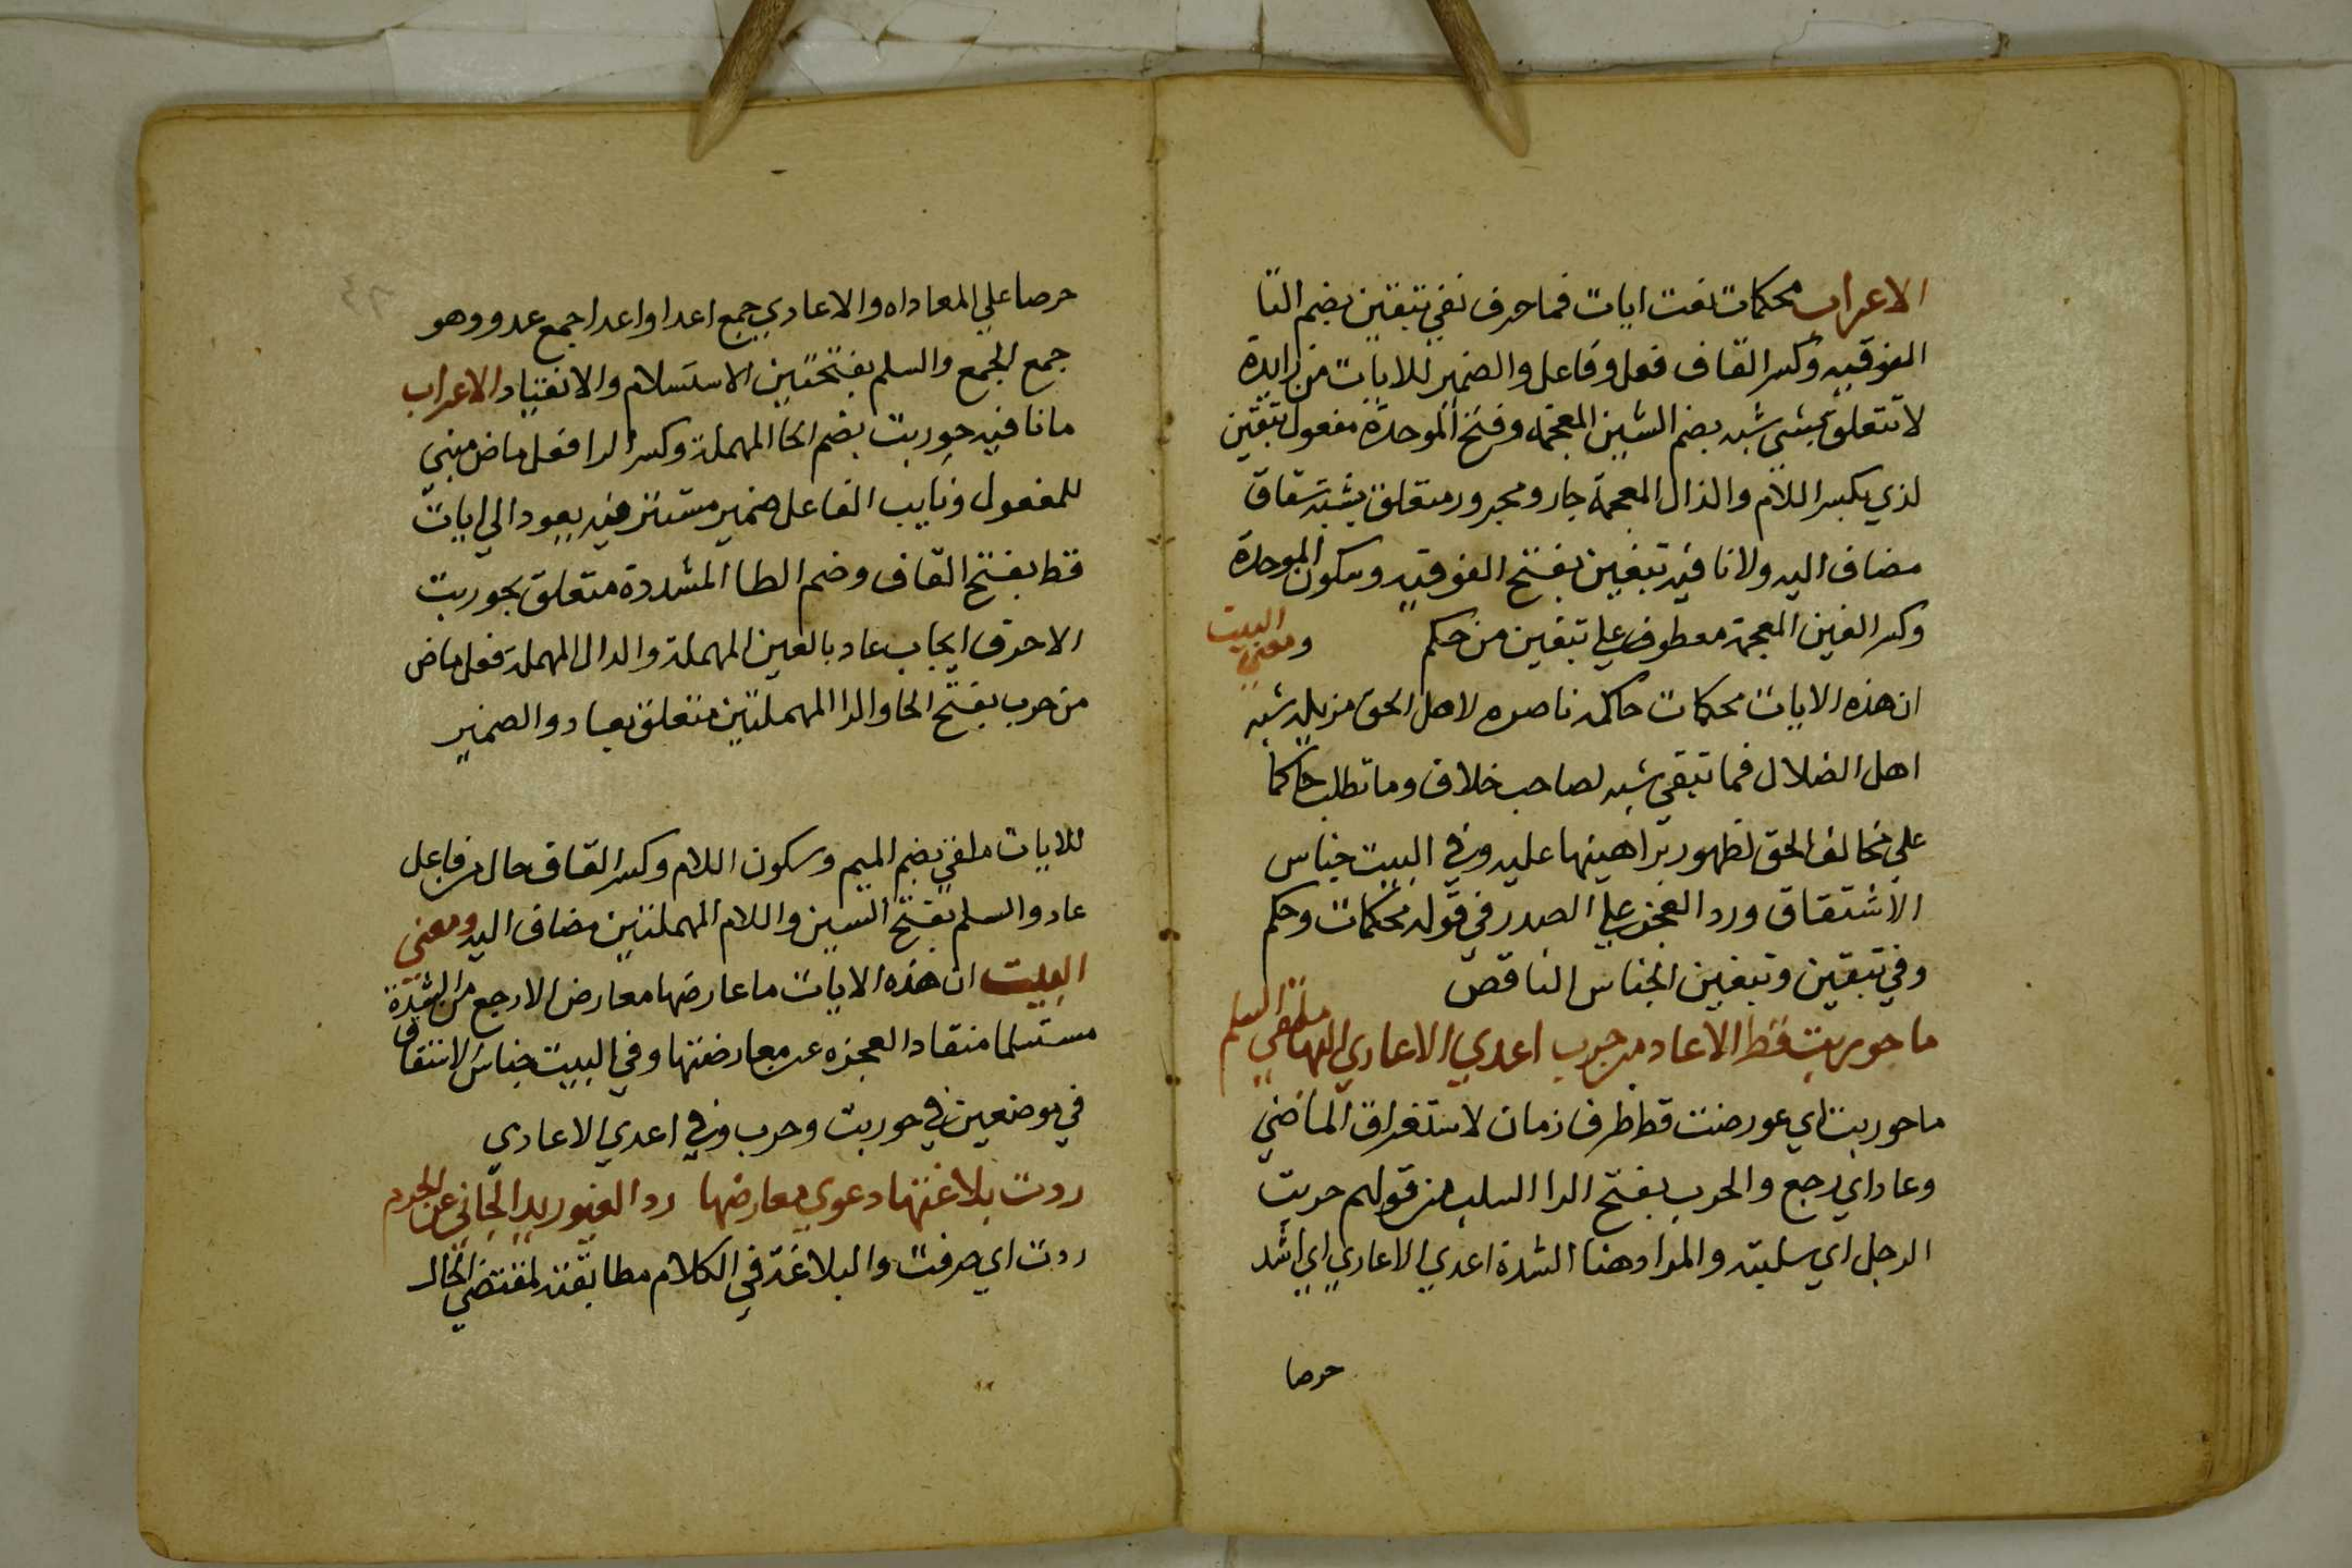 الاعراب محكمات نعت ايات فما حرف نفي تبقين بضم التا
الفوقيه وكسر القاف فعل وفاعل والضمير للايات من زايدة
لا تتعلق بشي شبه بضم الشين المعجمه وفتح الموحدة مفعول تبقين
لذي بكسر اللام والذال المعجمة جار ومجرور متعلق بشبه شقاق
مضاف اليه ولا نافيه تبغين بفتح الفوقيه وسكون الموحدة
وكسر الغين المعجمة معطوف علي تبقين من حكم ومعني البيت
ان هذه الايات محكمات حاكمه ناصره لاهل الحق مزيله شبه
اهل الضلال فما تبقي شبه لصاحب خلاف وما تطلب حاكما
علي مخالف الحق لظهور براهينها عليه وفي البيت جناس
الاشتقاق ورد العجز علي الصدر في قوله محكمات وحكم
وفي تبقين وتبغين الجناس الناقص
ما حوربت قط الا عاد من حرب اعدي الاعادي اليها ملقي السلم
ما حوربت اي عورضت قط ظرف زمان لاستغراق الماضي
وعاد اي رجع والحرب بفتح الرا السلب من قولهم حربت
الرجل اي سلبته والمراد هنا الشدة اعدي الاعادي اي اشد
حرصا
حرصا علي المعاداه والاعادي جمع اعدا واعدا جمع عدو وهو
جمع الجمع والسلم بفتحتين الاستسلام والانقياد الاعراب
ما نافيه حوربت بضم الحا المهملة وكسر الرا فعل ماض مبني
للمفعول ونايب الفاعل ضمير مستتر فيه يعود الي ايات
قط بفتح القاف وضم الطا المشددة متعلق بحوربت
الا حرف ايجاب عاد بالعين المهملة والدال المهملة فعل ماض
من حرب بفتح الحا والرا المهملتين متعلق بعاد والضمير
للايات ملقي بضم الميم وسكون اللام وكسر القاف حال من فاعل
عاد والسلم بفتح السين واللام المهملتين مضاف اليه ومعني
البيت ان هذه الايات ما عارضها معارض الا رجع من الشدة
مستسلما منقادا لعجزه عن معارضتها وفي البيت جناس الاشتقاق
في موضعين في حوربت وحرب وفي اعدي الاعادي
ردت بلاغتها دعوي معارضها رد الغيور يد الجاني عن الحرم
ردت اي صرفت والبلاغة في الكلام مطابقته لمقتضي الحال